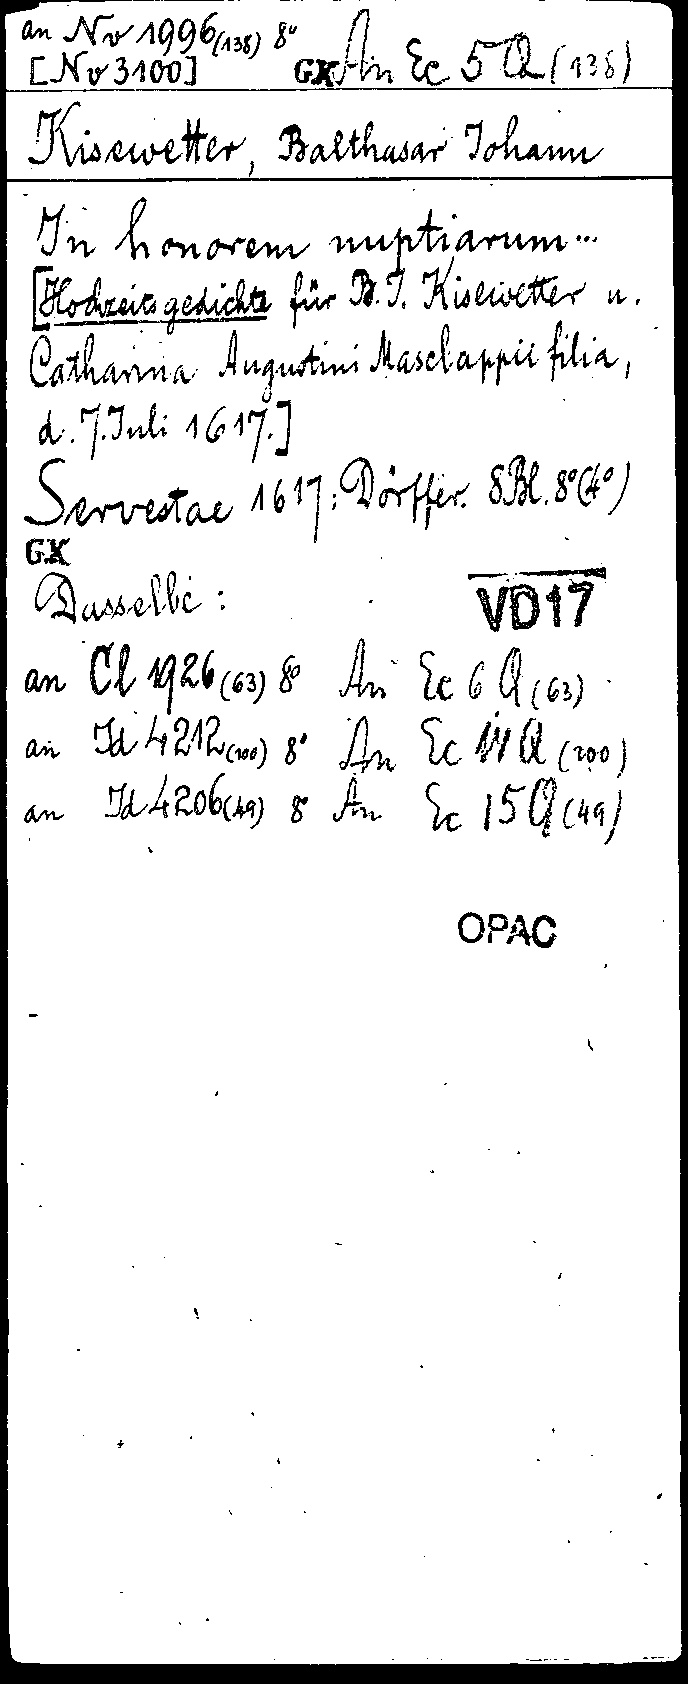 an Nv 1996 (138) 8°
[Nv 3100] GK An Ec 5 Q (138)
Kisewetter, Balthasar Johann
In honorem nuptiarum...
[Hochzeitsgedichte für B. J. Kisewetter u.
Catharina Augustini Maselappii filia,
d. 7. Juli 1617.]
Servestae 1617: Dörffer. 8 Bl. 8° (4°)
GK
Dasselbe:
VD17
an Cl 1926 (63) 8° An Ec 6 Q (63)
an Id 4212 (200) 8° An Ec Q (200)
an Id 4206 (49) 8° An Ec 15 Q (49)
OPAC